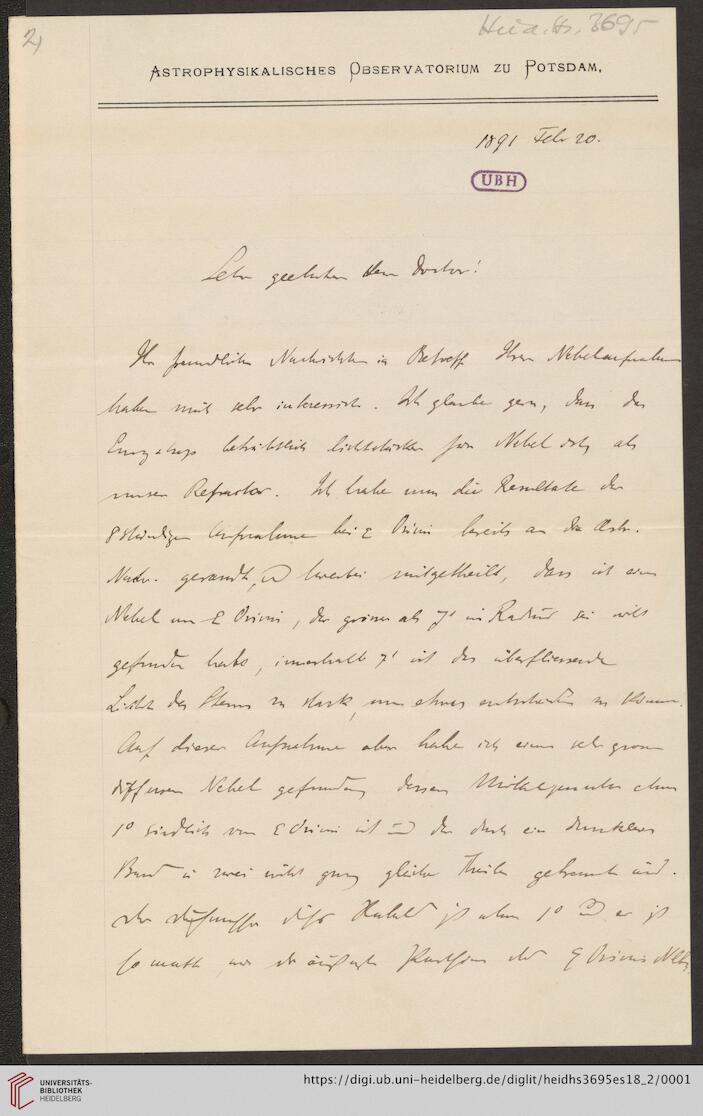 2)
Heid. Hs. 3695
ASTROPHYSIKALISCHES OBSERVATORIUM ZU POTSDAM.
1891 Febr 20.
UBH
Sehr geehrter Herr Doctor!
Ihre freundlichen Nachrichten in Betreff Ihrer Nebelaufnahmen
haben mich sehr interessirt. Ich glaube gern, dass das
beträchtlich lichtstärker für Nebel ist, als
unser Refractor. Ich habe nun die Resultate der
8 stündigen Aufnahme bei ε Orionis bereits an die Astr.
Nachr. gesandt, hierbei mitgetheilt, dass ich einen
Nebel um ε Orionis, der grösser als 7' im Radius sei nicht
gefunden habe, innerhalb 7' ist das überfliessende
Licht des Sterns zu stark, um etwas entscheiden zu können.
Auf dieser Aufnahme aber habe ich einen sehr grossen
diffusen Nebel gefunden, dessen Mittelpunkt etwa
1° südlich von ε Orionis ist und der durch ein dunkleres
Band in zwei nicht ganz gleiche Theile getrennt wird.
Der Durchmesser dieses Nebels ist etwa 1° und er ist
so matt, wie die äussersten Parthien des Orionis Nebels
UNIVERSITÄTS-
BIBLIOTHEK
HEIDELBERG
https://digi.ub.uni-heidelberg.de/diglit/heidhs3695es18_2/0001